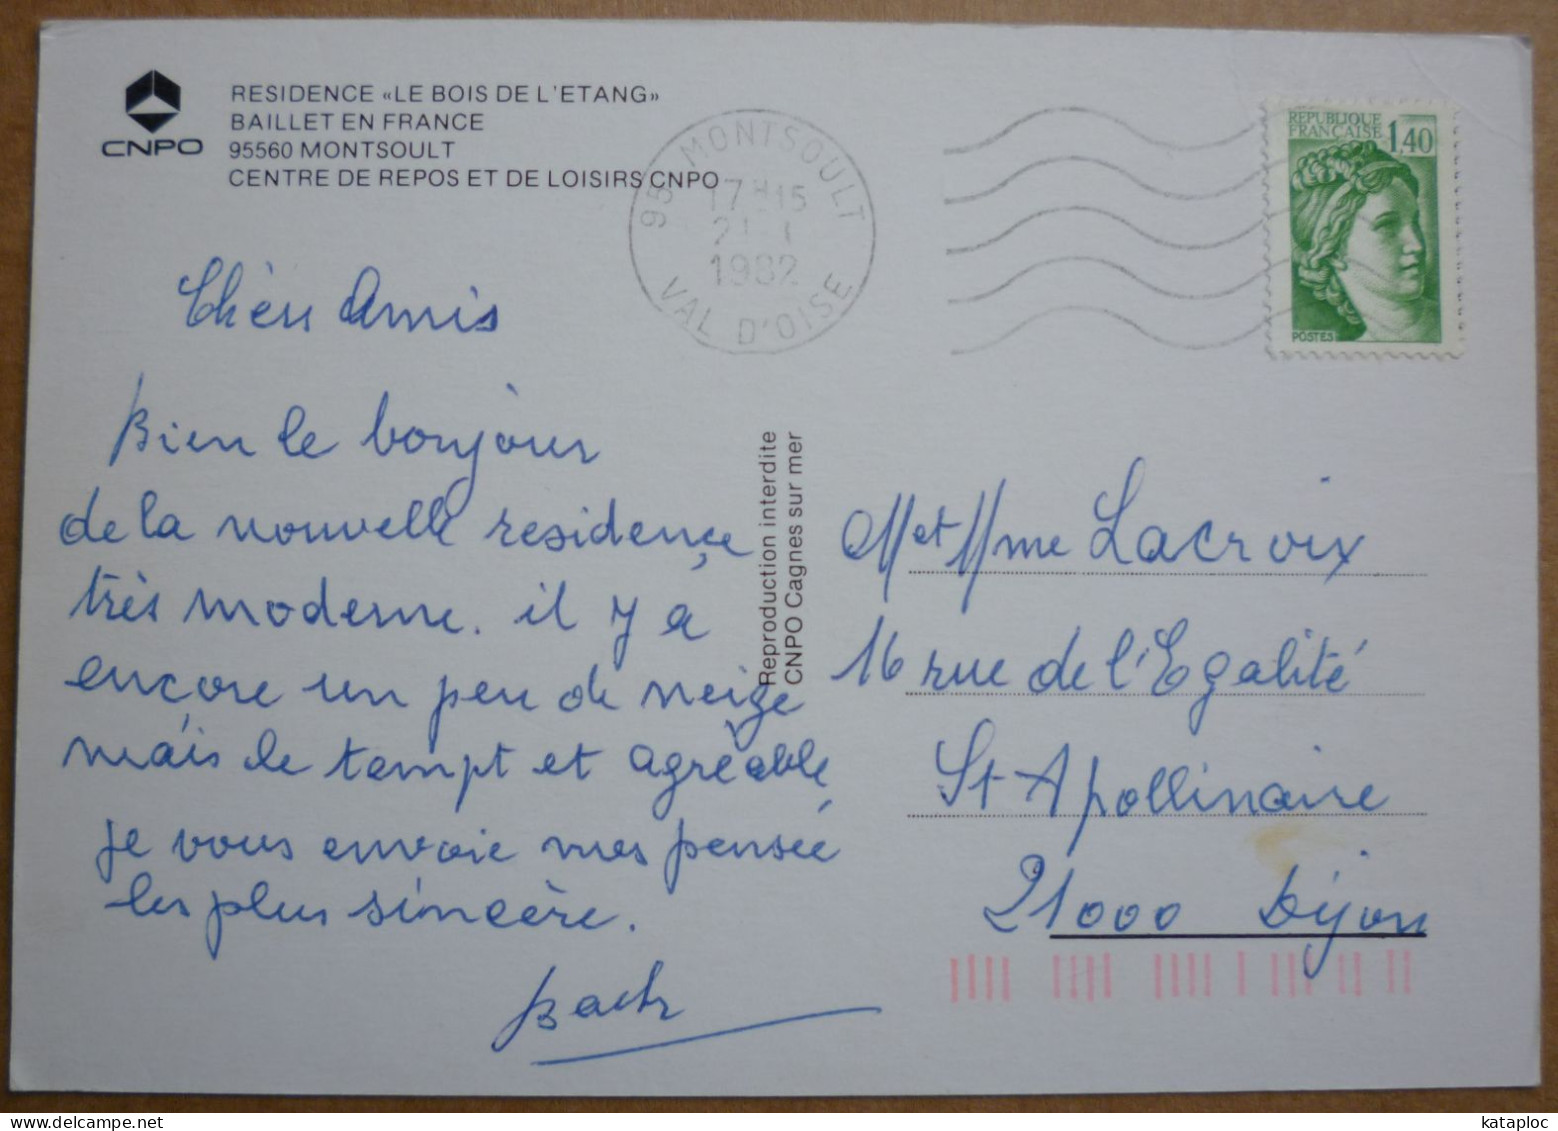 CNPO
RESIDENCE «LE BOIS DE L'ETANG»
BAILLET EN FRANCE
95560 MONTSOULT
CENTRE DE REPOS ET DE LOISIRS CNPO
95 MONTSOULT
17H15
1982
VAL D'OISE
REPUBLIQUE
FRANCAISE 1,40
POSTES
Chèrs Amis
Bien le bonjour
de la nouvelle residençe
très moderne. il y a
encore un peu de neige
mais le tempt et agréable
je vous envoie mes pensée
les plus sincère.
Reproduction interdite
CNPO Cagnes sur mer
M et Mme Lacroix
16 rue de l'Egalité
St Apollinaire
21000 Dijon
kataploc